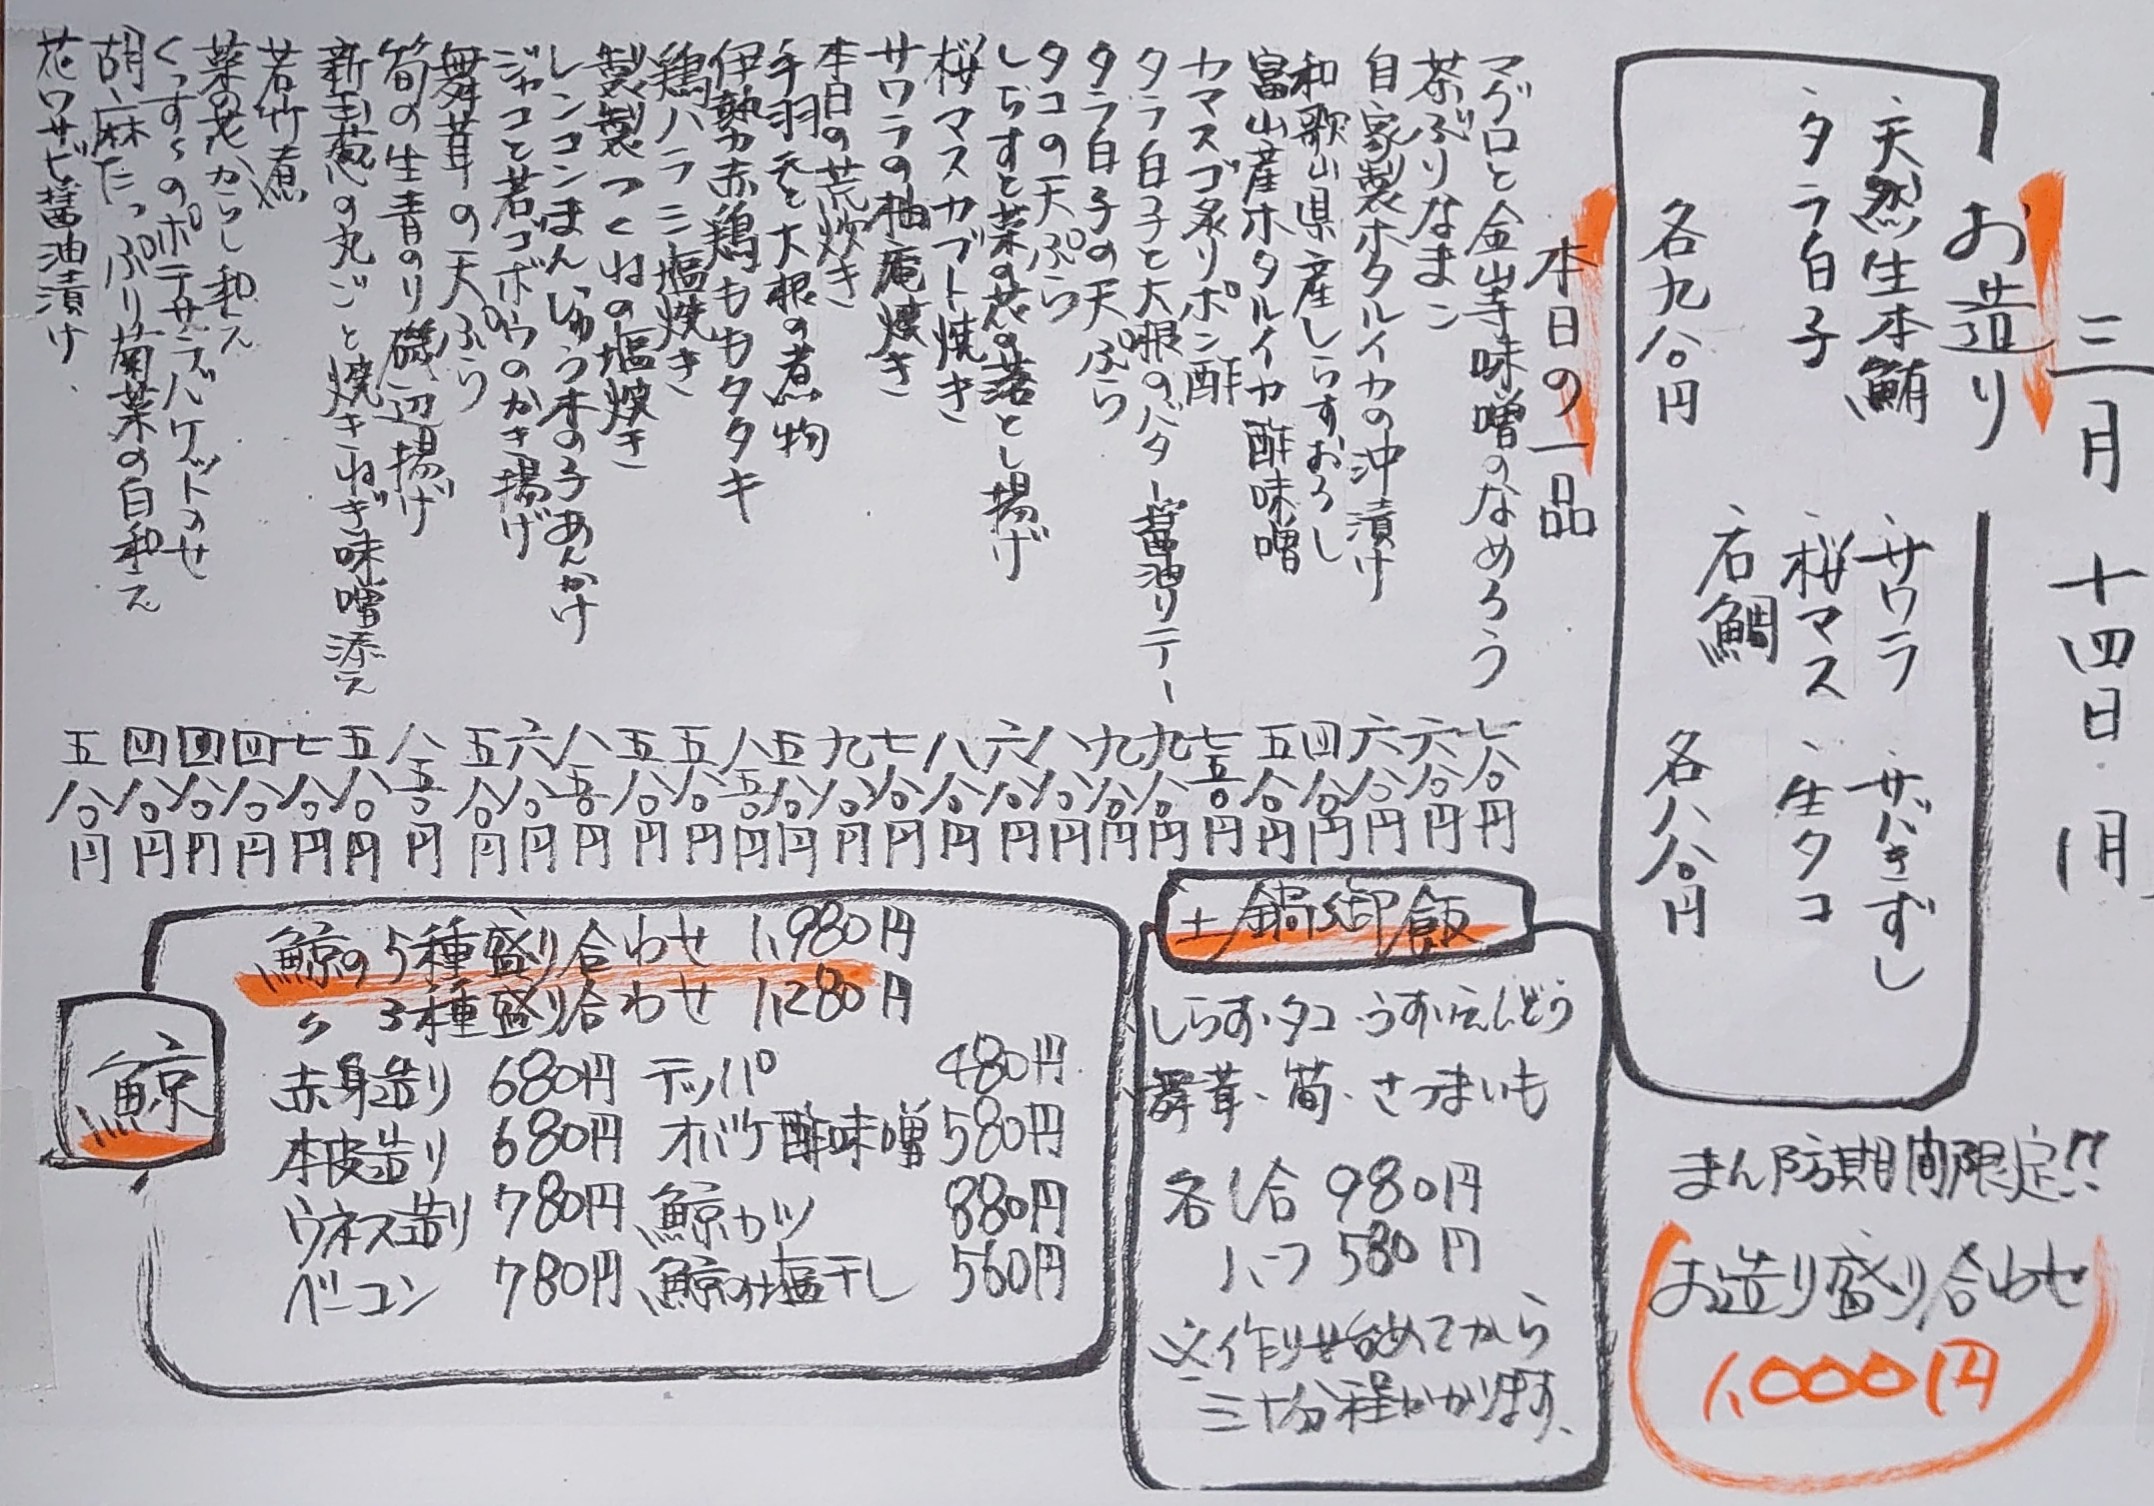 三月十四日(月)
お造り
・天然生本鮪
・サワラ
・サバきずし
・タラ白子
・桜マス
・生タコ
・石鯛
各九八〇円
各八八〇円
まん防期間限定!!
お造り盛り合わせ
1,000円
本日の一品
マグロと金山寺味噌のなめろう 七八〇円
茶ぶりなまこ 六八〇円
自家製ホタルイカの沖漬け 六八〇円
和歌山県産しらすおろし 四八〇円
富山産ホタルイカ酢味噌 五八〇円
カマスゴ炙りポン酢 七五〇円
タラ白子と大根のバター醤油ソテー 九八〇円
タラ白子の天ぷら 九八〇円
タコの天ぷら 八八〇円
しらすと菜の花の落とし揚げ 六八〇円
桜マスカブト焼き 八八〇円
サワラの柚庵焼き 七八〇円
本日の荒炊き 九八〇円
手羽元と大根の煮物 五八〇円
伊勢赤鶏ももタタキ 八五〇円
鶏ハラミ塩焼き 五八〇円
自家製つくねの塩焼き 五八〇円
レンコンまんじゅう木の子あんかけ 八五〇円
ジャコと若ゴボウのかき揚げ 六八〇円
舞茸の天ぷら 五八〇円
筍の生青のり磯辺揚げ 八五〇円
新玉葱の丸ごと焼きねぎ味噌添え 五八〇円
若竹煮 七八〇円
菜の花からし和え 四八〇円
くっすぅのポテサラバケットのせ 四八〇円
胡麻たっぷり菊菜の白和え 四八〇円
花ワサビ醤油漬け 五八〇円
土鍋御飯
・しらす・タコ・うすいえんどう
・舞茸・筍・さつまいも
各1合 980円
ハーフ 580円
※作り始めてから
三十分程かかります。
鯨
鯨の5種盛り合わせ 1,980円
〃 3種盛り合わせ 1,280円
赤身造り 680円 テッパ 480円
本皮造り 680円 オバケ酢味噌 580円
ウネス造り 780円 鯨カツ 880円
ベーコン 780円 鯨の塩干し 560円